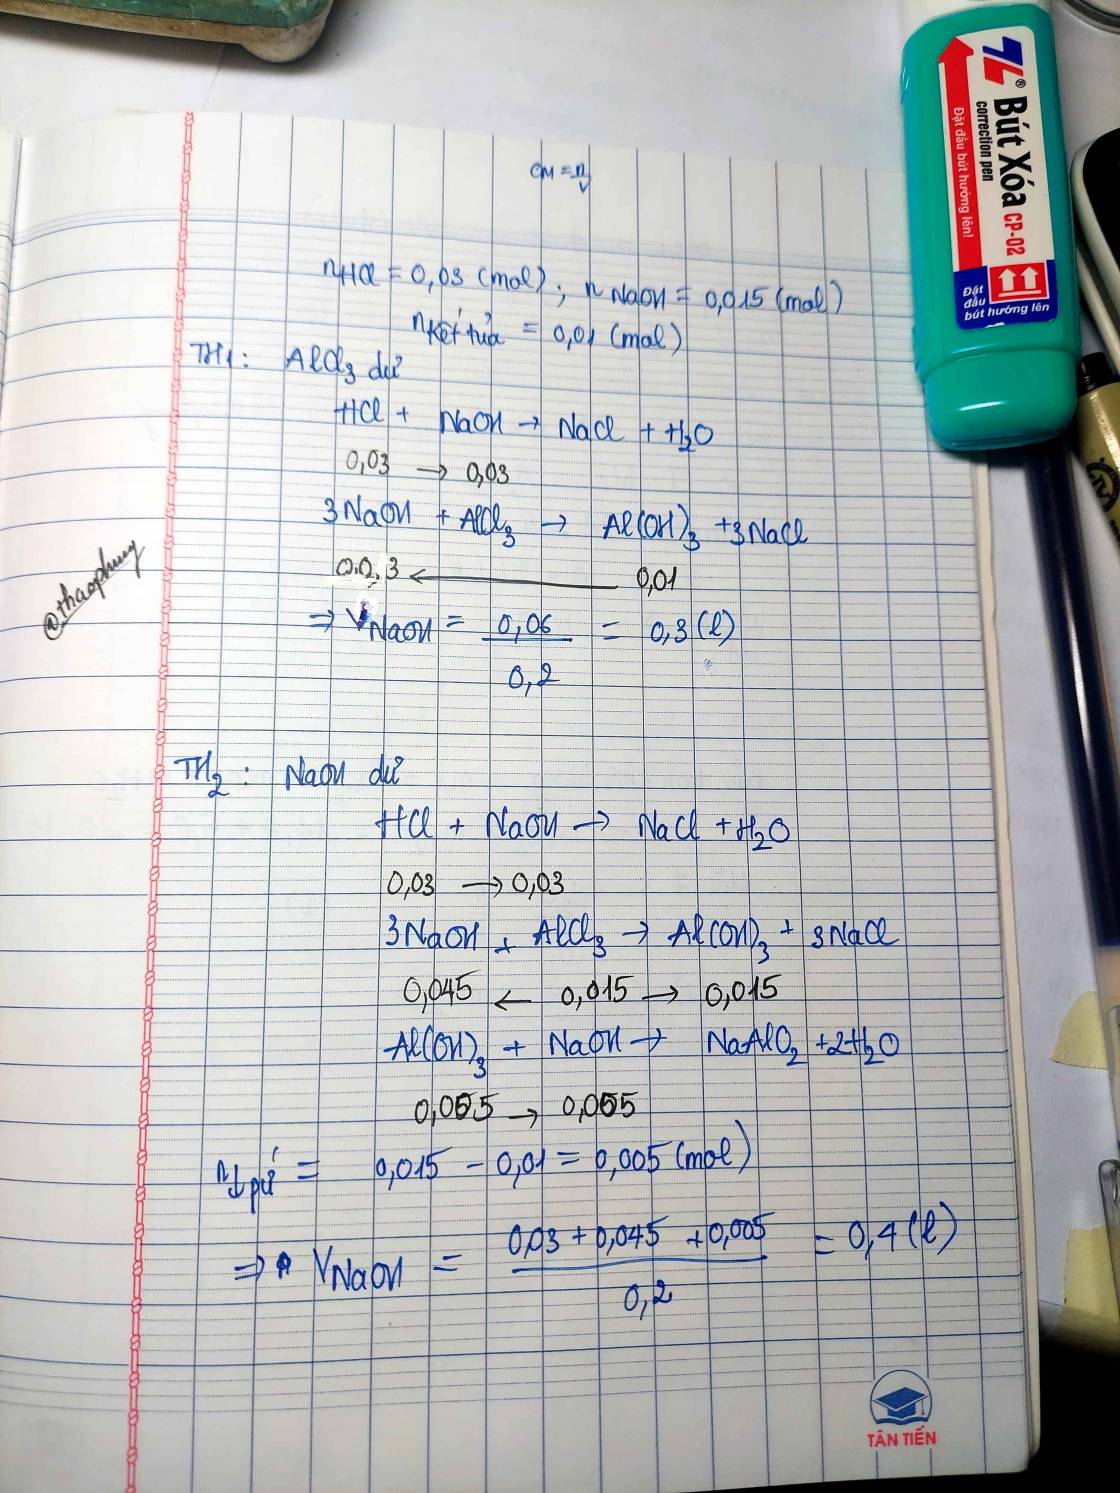 CM = n/V
nHCl = 0,03 (mol) ; n NaOH = 0,015 (mol)
nkết tủa = 0,01 (mol)
TH1: AlCl3 dư
HCl + NaOH → NaCl + H2O
0,03 → 0,03
3NaOH + AlCl3 → Al(OH)3 + 3NaCl
0,03 ← 0,01
⇒ VNaOH = 0,06 / 0,2 = 0,3 (l)
@thaophung
TH2: NaOH dư
HCl + NaOH → NaCl + H2O
0,03 → 0,03
3NaOH + AlCl3 → Al(OH)3 + 3NaCl
0,045 ← 0,015 → 0,015
Al(OH)3 + NaOH → NaAlO2 + 2H2O
0,005 → 0,005
n↓pứ = 0,015 - 0,01 = 0,005 (mol)
⇒ VNaOH = 0,03 + 0,045 + 0,005 / 0,2 = 0,4 (l)
TÂN TIẾN
TL® Bút Xóa CP-02
correction pen
Đặt đầu bút hướng lên!
Đặt
đầu
bút hướng lên